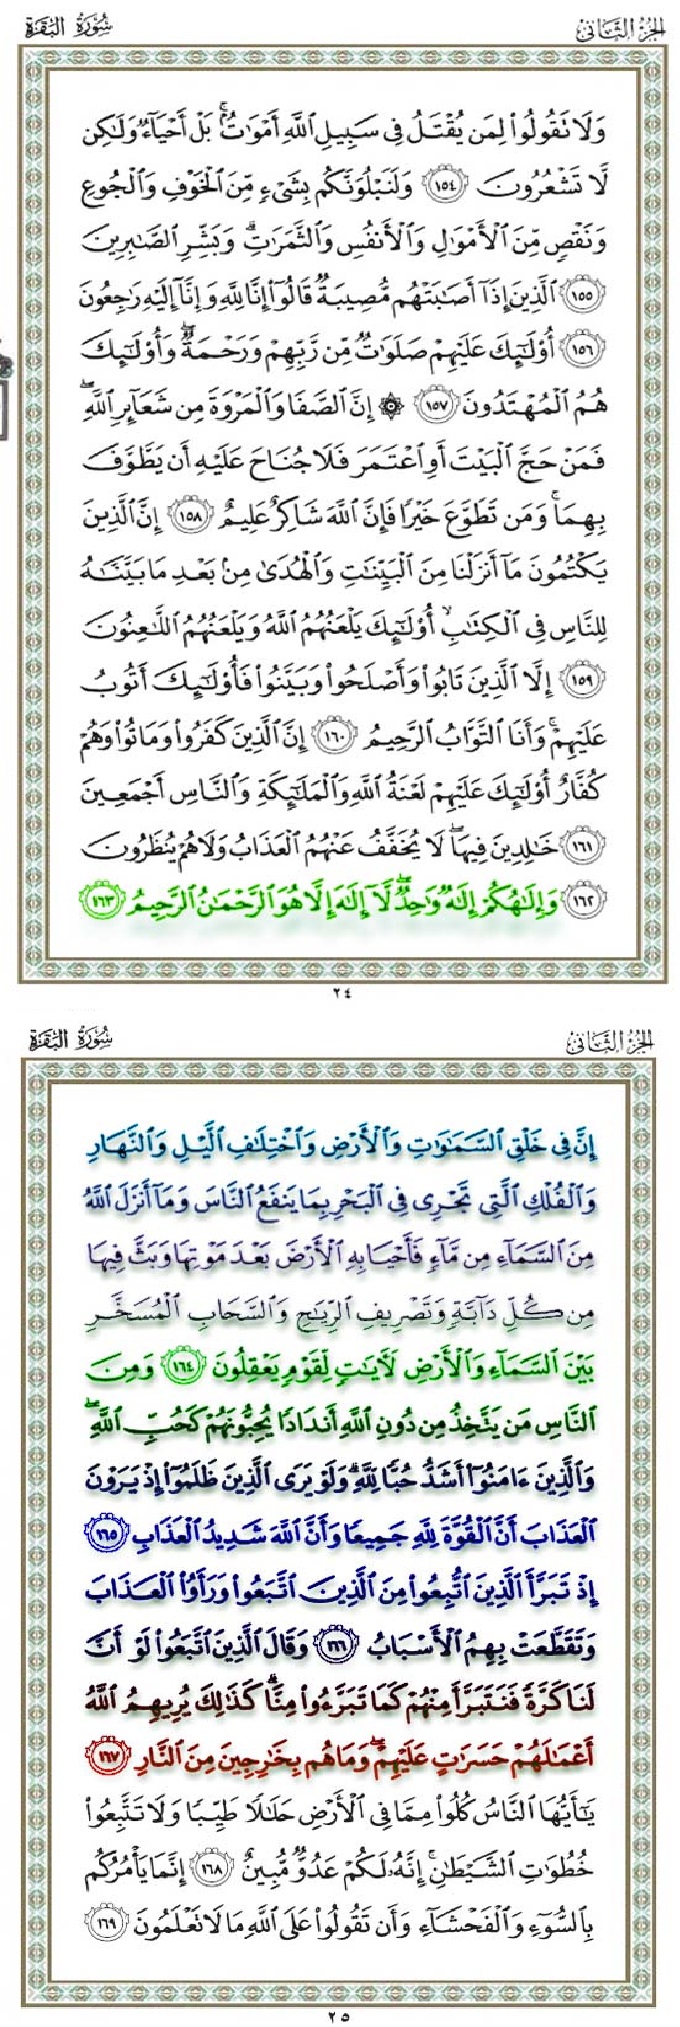 الجزء الثاني
سورة البقرة
وَلَا تَقُولُوا۟ لِمَن يُقْتَلُ فِى سَبِيلِ ٱللَّهِ أَمْوَٰتٌۢ ۚ بَلْ أَحْيَآءٌ وَلَٰكِن
لَّا تَشْعُرُونَ ١٥٤ وَلَنَبْلُوَنَّكُم بِشَىْءٍ مِّنَ ٱلْخَوْفِ وَٱلْجُوعِ
وَنَقْصٍ مِّنَ ٱلْأَمْوَٰلِ وَٱلْأَنفُسِ وَٱلثَّمَرَٰتِ ۗ وَبَشِّرِ ٱلصَّٰبِرِينَ
١٥٥ ٱلَّذِينَ إِذَآ أَصَٰبَتْهُم مُّصِيبَةٌ قَالُوٓا۟ إِنَّا لِلَّهِ وَإِنَّآ إِلَيْهِ رَٰجِعُونَ
١٥٦ أُو۟لَٰٓئِكَ عَلَيْهِمْ صَلَوَٰتٌ مِّن رَّبِّهِمْ وَرَحْمَةٌ ۖ وَأُو۟لَٰٓئِكَ
هُمُ ٱلْمُهْتَدُونَ ١٥٧ ۞ إِنَّ ٱلصَّفَا وَٱلْمَرْوَةَ مِن شَعَآئِرِ ٱللَّهِ ۖ
فَمَنْ حَجَّ ٱلْبَيْتَ أَوِ ٱعْتَمَرَ فَلَا جُنَاحَ عَلَيْهِ أَن يَطَّوَّفَ
بِهِمَا ۚ وَمَن تَطَوَّعَ خَيْرًا فَإِنَّ ٱللَّهَ شَاكِرٌ عَلِيمٌ ١٥٨ إِنَّ ٱلَّذِينَ
يَكْتُمُونَ مَآ أَنزَلْنَا مِنَ ٱلْبَيِّنَٰتِ وَٱلْهُدَىٰ مِنۢ بَعْدِ مَا بَيَّنَّٰهُ
لِلنَّاسِ فِى ٱلْكِتَٰبِ ۙ أُو۟لَٰٓئِكَ يَلْعَنُهُمُ ٱللَّهُ وَيَلْعَنُهُمُ ٱللَّٰعِنُونَ
١٥٩ إِلَّا ٱلَّذِينَ تَابُوا۟ وَأَصْلَحُوا۟ وَبَيَّنُوا۟ فَأُو۟لَٰٓئِكَ أَتُوبُ
عَلَيْهِمْ ۚ وَأَنَا ٱلتَّوَّابُ ٱلرَّحِيمُ ١٦٠ إِنَّ ٱلَّذِينَ كَفَرُوا۟ وَمَاتُوا۟ وَهُمْ
كُفَّارٌ أُو۟لَٰٓئِكَ عَلَيْهِمْ لَعْنَةُ ٱللَّهِ وَٱلْمَلَٰٓئِكَةِ وَٱلنَّاسِ أَجْمَعِينَ
١٦١ خَٰلِدِينَ فِيهَا ۖ لَا يُخَفَّفُ عَنْهُمُ ٱلْعَذَابُ وَلَا هُمْ يُنظَرُونَ
١٦٢ وَإِلَٰهُكُمْ إِلَٰهٌ وَٰحِدٌ ۖ لَّآ إِلَٰهَ إِلَّا هُوَ ٱلرَّحْمَٰنُ ٱلرَّحِيمُ ١٦٣
٢٤
الجزء الثاني
سورة البقرة
إِنَّ فِى خَلْقِ ٱلسَّمَٰوَٰتِ وَٱلْأَرْضِ وَٱخْتِلَٰفِ ٱلَّيْلِ وَٱلنَّهَارِ
وَٱلْفُلْكِ ٱلَّتِى تَجْرِى فِى ٱلْبَحْرِ بِمَا يَنفَعُ ٱلنَّاسَ وَمَآ أَنزَلَ ٱللَّهُ
مِنَ ٱلسَّمَآءِ مِن مَّآءٍ فَأَحْيَا بِهِ ٱلْأَرْضَ بَعْدَ مَوْتِهَا وَبَثَّ فِيهَا
مِن كُلِّ دَآبَّةٍ وَتَصْرِيفِ ٱلرِّيَٰحِ وَٱلسَّحَابِ ٱلْمُسَخَّرِ
بَيْنَ ٱلسَّمَآءِ وَٱلْأَرْضِ لَءَايَٰتٍ لِّقَوْمٍ يَعْقِلُونَ ١٦٤ وَمِنَ
ٱلنَّاسِ مَن يَتَّخِذُ مِن دُونِ ٱللَّهِ أَندَادًا يُحِبُّونَهُمْ كَحُبِّ ٱللَّهِ ۖ
وَٱلَّذِينَ ءَامَنُوٓا۟ أَشَدُّ حُبًّا لِّلَّهِ ۗ وَلَوْ يَرَى ٱلَّذِينَ ظَلَمُوٓا۟ إِذْ يَرَوْنَ
ٱلْعَذَابَ أَنَّ ٱلْقُوَّةَ لِلَّهِ جَمِيعًا وَأَنَّ ٱللَّهَ شَدِيدُ ٱلْعَذَابِ ١٦٥
إِذْ تَبَرَّأَ ٱلَّذِينَ ٱتُّبِعُوا۟ مِنَ ٱلَّذِينَ ٱتَّبَعُوا۟ وَرَأَوُا۟ ٱلْعَذَابَ
وَتَقَطَّعَتْ بِهِمُ ٱلْأَسْبَابُ ١٦٦ وَقَالَ ٱلَّذِينَ ٱتَّبَعُوا۟ لَوْ أَنَّ
لَنَا كَرَّةً فَنَتَبَرَّأَ مِنْهُمْ كَمَا تَبَرَّءُوا۟ مِنَّا ۗ كَذَٰلِكَ يُرِيهِمُ ٱللَّهُ
أَعْمَٰلَهُمْ حَسَرَٰتٍ عَلَيْهِمْ ۖ وَمَا هُم بِخَٰرِجِينَ مِنَ ٱلنَّارِ ١٦٧
يَٰٓأَيُّهَا ٱلنَّاسُ كُلُوا۟ مِمَّا فِى ٱلْأَرْضِ حَلَٰلًا طَيِّبًا وَلَا تَتَّبِعُوا۟
خُطُوَٰتِ ٱلشَّيْطَٰنِ ۚ إِنَّهُۥ لَكُمْ عَدُوٌّ مُّبِينٌ ١٦٨ إِنَّمَا يَأْمُرُكُم
بِٱلسُّوٓءِ وَٱلْفَحْشَآءِ وَأَن تَقُولُوا۟ عَلَى ٱللَّهِ مَا لَا تَعْلَمُونَ ١٦٩
٢٥